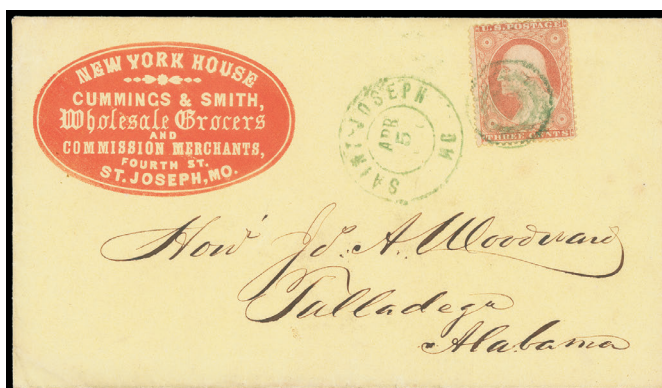 NEW YORK HOUSE
CUMMINGS & SMITH,
Wholesale Grocers
AND
COMMISSION MERCHANTS,
FOURTH ST.
ST. JOSEPH, MO.
SAINT JOSEPH MO
APR
5
U.S. POSTAGE
THREE CENTS
Hon' Jd. A. Woodward
Talladega
Alabama